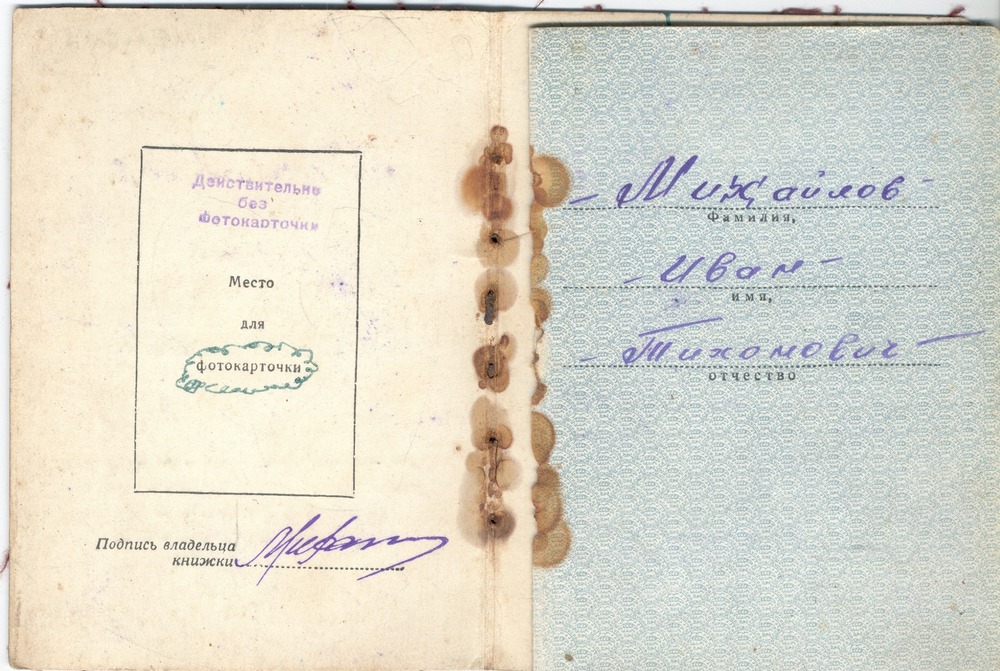 Действительно
без
фотокарточки
Место
для
фотокарточки
Подпись владельца
книжки
Михайлов
Фамилия,
Иван
имя,
Тихонович
отчество